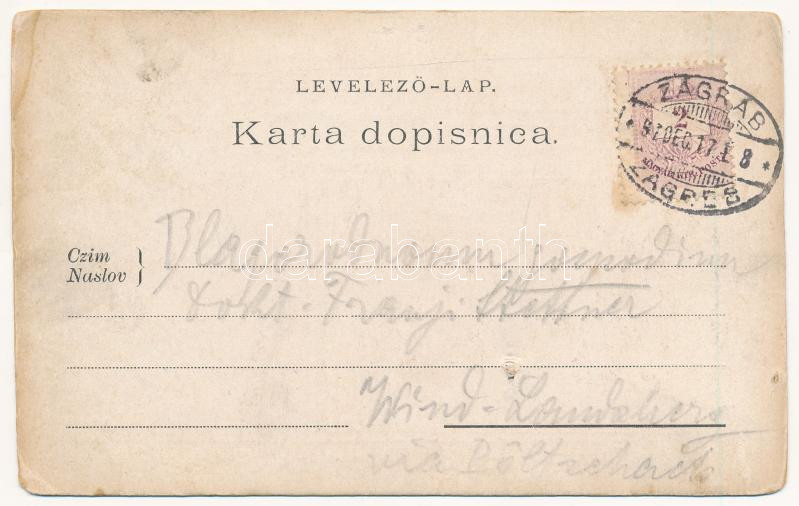 LEVELEZŐ-LAP.
Karta dopisnica.
ZÁGRÁB
97 DEC. 17. 8
ZAGREB
2
Czim
Naslov
Blagorodnom gospodinu
dokt. Franji Stettner
Wind-Landsberg
via Pöltschach
darabanth